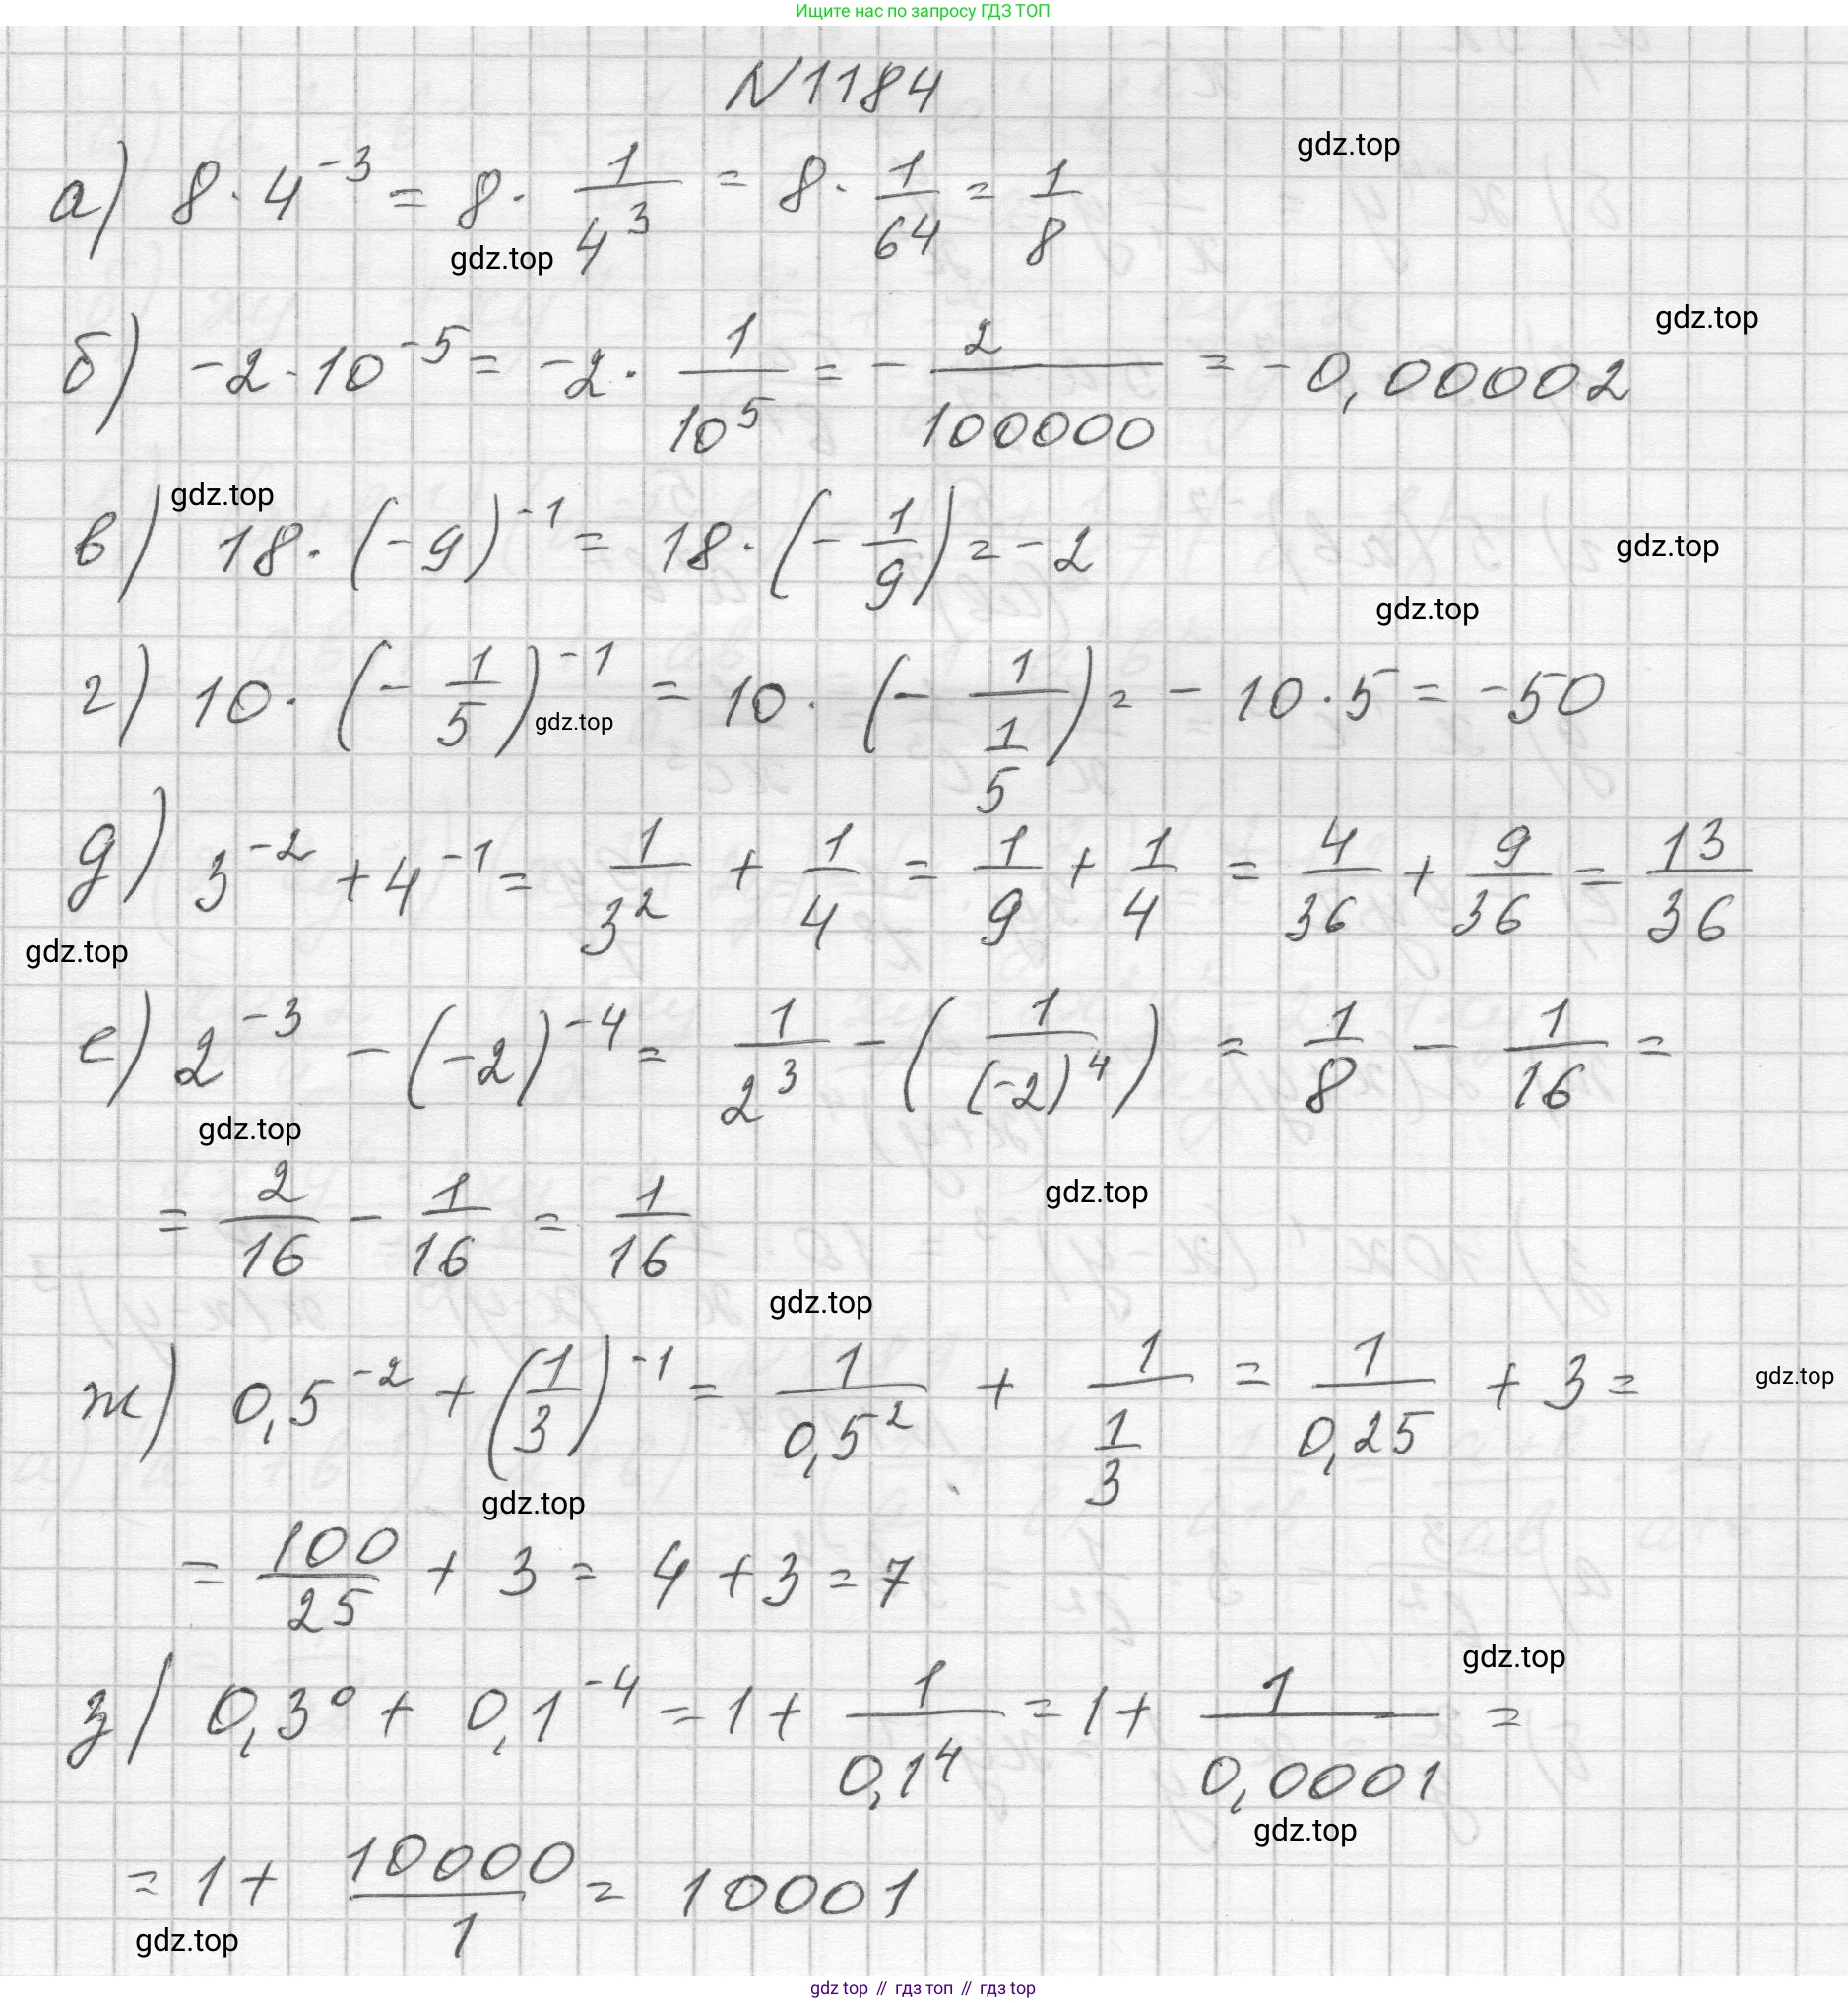 Ищите нас по запросу ГДЗ ТОП
N1184
gdz.top
а) 8 · 4^-3 = 8 · 1/4^3 = 8 · 1/64 = 1/8
gdz.top
gdz.top
б) -2 · 10^-5 = -2 · 1/10^5 = - 2/100000 = -0,00002
gdz.top
в) 18 · (-9)^-1 = 18 · (- 1/9) = -2
gdz.top
gdz.top
г) 10 · (- 1/5)^-1 = 10 · (- 1/(1/5)) = - 10 · 5 = -50
gdz.top
д) 3^-2 + 4^-1 = 1/3^2 + 1/4 = 1/9 + 1/4 = 4/36 + 9/36 = 13/36
gdz.top
е) 2^-3 - (-2)^-4 = 1/2^3 - (1/(-2)^4) = 1/8 - 1/16 =
gdz.top
gdz.top
= 2/16 - 1/16 = 1/16
gdz.top
ж) 0,5^-2 + (1/3)^-1 = 1/0,5^2 + 1/(1/3) = 1/0,25 + 3 =
gdz.top
gdz.top
= 100/25 + 3 = 4 + 3 = 7
gdz.top
з) 0,3^0 + 0,1^-4 = 1 + 1/0,1^4 = 1 + 1/0,0001 =
gdz.top
= 1 + 10000/1 = 10001
gdz.top
gdz top // гдз топ // гдз top